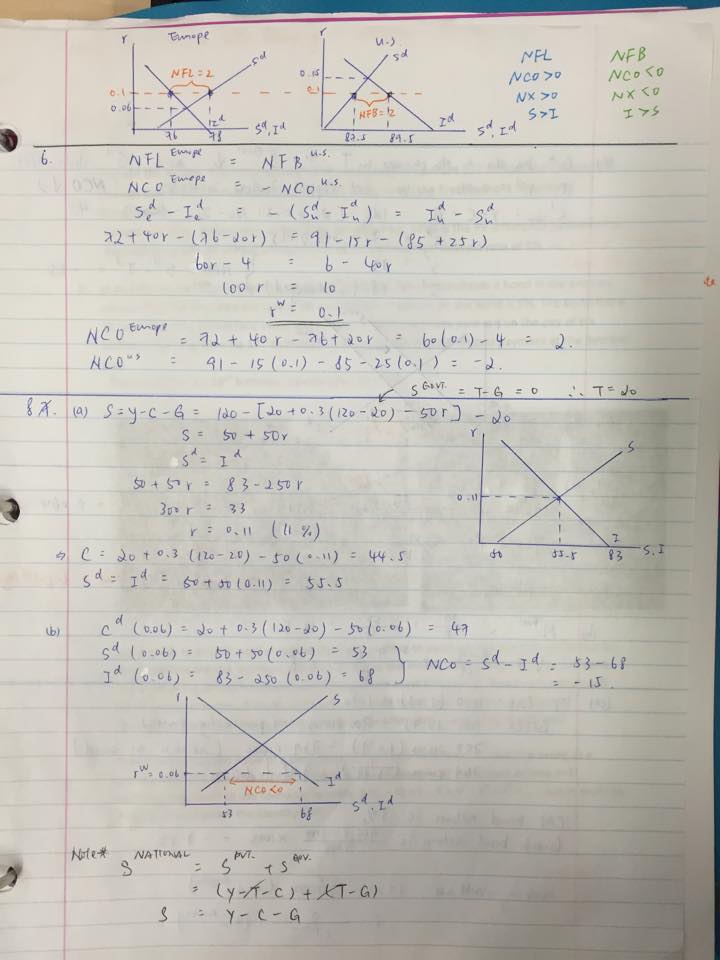 r Europe
S^d
NFL = 2
0.1
0.06
I^d
76 78 S^d, I^d
r U.S.
S^d
0.15
0.1
NFB = 2
I^d
87.5 89.5 S^d, I^d
NFL NFB
NCO>0 NCO<0
NX>0 NX<0
S>I I>S
6. NFL^Europe = NFB^U.S.
NCO^Europe = - NCO^U.S.
S_e^d - I_e^d = - (S_u^d - I_u^d) = I_u^d - S_u^d
72 + 40r - (76 - 20r) = 91 - 15r - (85 + 25r)
60r - 4 = 6 - 40r
100r = 10
r^w = 0.1
NCO^Europe = 72 + 40r - 76 + 20r = 60(0.1) - 4 = 2.
NCO^US = 91 - 15(0.1) - 85 - 25(0.1) = -2.
S^GOVT. = T-G = 0 ∴ T = 20
8. (a) S = Y-C-G = 120 - [20 + 0.3(120-20) - 50r] - 20
S = 50 + 50r
S^d = I^d
50 + 50r = 83 - 250r
300r = 33
r = 0.11 (11%)
⇒ C = 20 + 0.3(120-20) - 50(0.11) = 44.5
S^d = I^d = 50 + 50(0.11) = 55.5
r
S
0.11
I
50 55.5 83 S, I
(b) C^d(0.06) = 20 + 0.3(120-20) - 50(0.06) = 47
S^d(0.06) = 50 + 50(0.06) = 53
I^d(0.06) = 83 - 250(0.06) = 68
NCO = S^d - I^d = 53 - 68
= -15.
r
S
r^w = 0.06
NCO<0
I^d
53 68 S^d, I^d
Note*
S^NATIONAL = S^PVT. + S^GOV.
= (Y-T-C) + (T-G)
S = Y - C - G